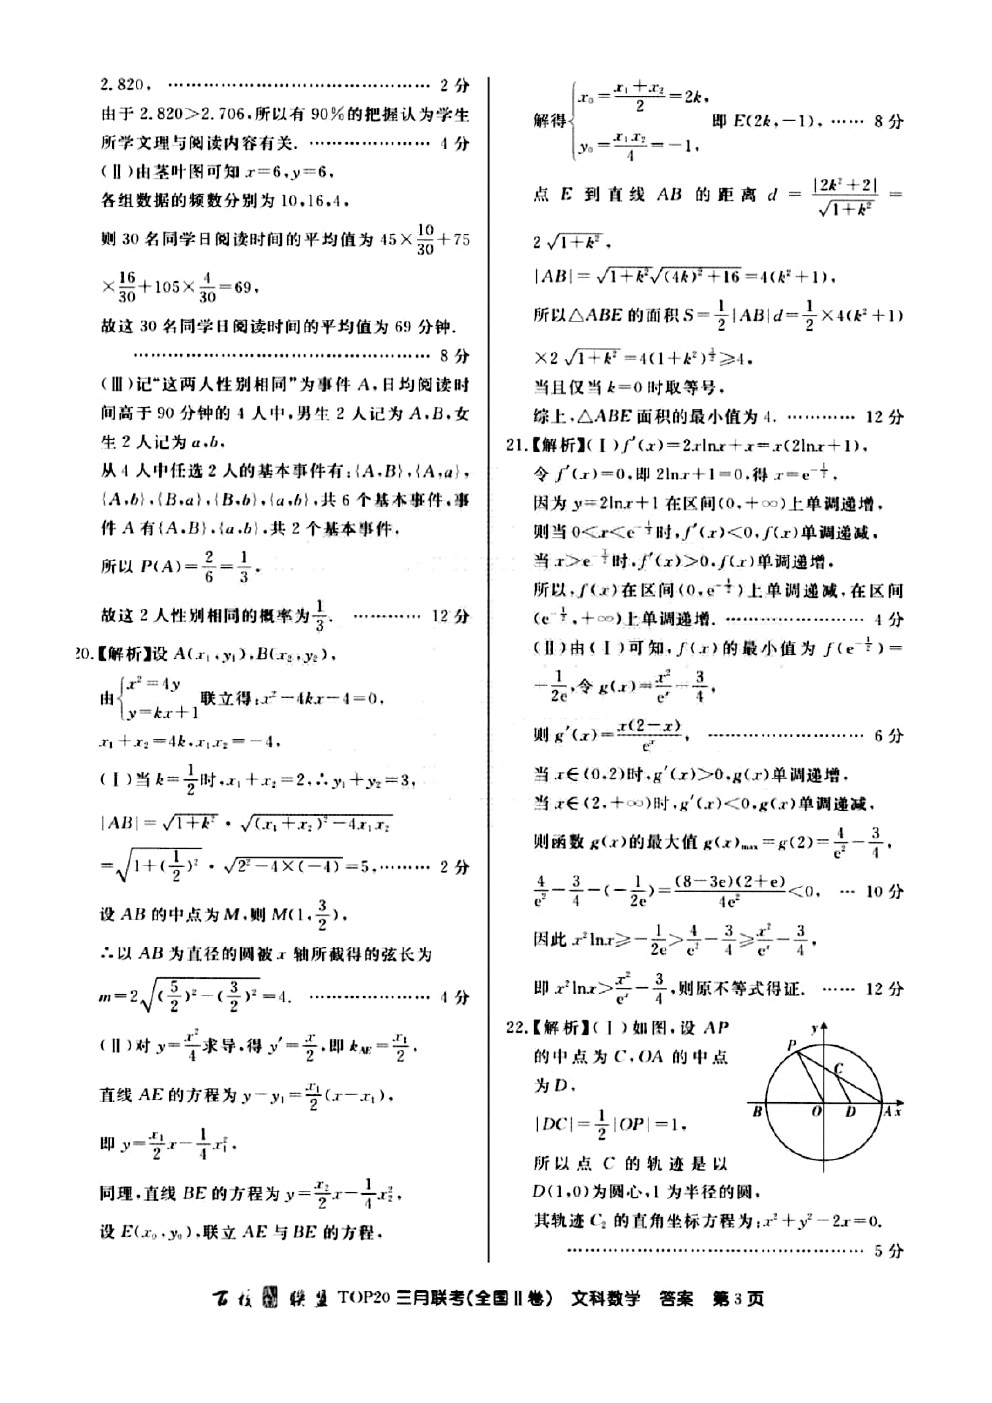 2.820, …………………………………… 2 分
由于 2.820>2.706,所以有 90%的把握认为学生
所学文理与阅读内容有关. ………………… 4 分
(Ⅱ)由茎叶图可知 x=6,y=6,
各组数据的频数分别为 10,16,4,
则 30 名同学日阅读时间的平均值为 45×10/30+75
×16/30+105×4/30=69,
故这 30 名同学日阅读时间的平均值为 69 分钟.
………………………………………… 8 分
(Ⅲ)记“这两人性别相同”为事件 A,日均阅读时
间高于 90 分钟的 4 人中,男生 2 人记为 A,B,女
生 2 人记为 a,b,
从 4 人中任选 2 人的基本事件有:{A,B},{A,a},
{A,b},{B,a},{B,b},{a,b},共 6 个基本事件,事
件 A 有{A,B},{a,b},共 2 个基本事件,
所以 P(A)=2/6=1/3.
故这 2 人性别相同的概率为1/3. ………… 12 分
20.【解析】设 A(x₁,y₁),B(x₂,y₂),
由{x²=4y
y=kx+1 联立得:x²-4kx-4=0,
x₁+x₂=4k,x₁x₂=-4,
(Ⅰ)当 k=1/2时,x₁+x₂=2,∴y₁+y₂=3,
|AB|=√(1+k²)·√((x₁+x₂)²-4x₁x₂)
=√(1+(1/2)²)·√(2²-4×(-4))=5,……… 2 分
设 AB 的中点为 M,则 M(1,3/2),
∴以 AB 为直径的圆被 x 轴所截得的弦长为
m=2√((5/2)²-(3/2)²)=4. ………………… 4 分
(Ⅱ)对 y=x²/4求导,得 y′=x/2,即 k_AE=x₁/2,
直线 AE 的方程为 y-y₁=x₁/2(x-x₁),
即 y=x₁/2x-1/4x₁²,
同理,直线 BE 的方程为 y=x₂/2x-1/4x₂²,
设 E(x₀,y₀),联立 AE 与 BE 的方程,
解得{x₀=(x₁+x₂)/2=2k,
y₀=x₁x₂/4=-1, 即 E(2k,-1), …… 8 分
点 E 到直线 AB 的距离 d=|2k²+2|/√(1+k²)=
2√(1+k²),
|AB|=√(1+k²)√((4k)²+16)=4(k²+1),
所以△ABE 的面积 S=1/2|AB|d=1/2×4(k²+1)
×2√(1+k²)=4(1+k²)^(3/2)≥4,
当且仅当 k=0 时取等号,
综上,△ABE 面积的最小值为 4. ………… 12 分
21.【解析】(Ⅰ)f′(x)=2xlnx+x=x(2lnx+1),
令 f′(x)=0,即 2lnx+1=0,得 x=e^(-1/2),
因为 y=2lnx+1 在区间(0,+∞)上单调递增,
则当 0<x<e^(-1/2)时,f′(x)<0,f(x)单调递减,
当 x>e^(-1/2)时,f′(x)>0,f(x)单调递增,
所以,f(x)在区间(0,e^(-1/2))上单调递减,在区间
(e^(-1/2),+∞)上单调递增. …………………… 4 分
(Ⅱ)由(Ⅰ)可知,f(x)的最小值为 f(e^(-1/2))=
-1/2e,令 g(x)=x²/eˣ-3/4,
则 g′(x)=x(2-x)/eˣ, ……………………… 6 分
当 x∈(0,2)时,g′(x)>0,g(x)单调递增,
当 x∈(2,+∞)时,g′(x)<0,g(x)单调递减,
则函数 g(x)的最大值 g(x)max=g(2)=4/e²-3/4,
4/e²-3/4-(-1/2e)=(8-3e)(2+e)/4e²<0, … 10 分
因此 x²lnx≥-1/2e>4/e²-3/4≥x²/eˣ-3/4,
即 x²lnx>x²/eˣ-3/4,则原不等式得证. …… 12 分
22.【解析】(Ⅰ)如图,设 AP
的中点为 C,OA 的中点
为 D,
|DC|=1/2|OP|=1,
所以点 C 的轨迹是以
D(1,0)为圆心,1 为半径的圆,
其轨迹 C₂ 的直角坐标方程为:x²+y²-2x=0.
………………………………………… 5 分
y
P
C
B
O
D
A
x
百校联盟 TOP20 三月联考(全国Ⅱ卷) 文科数学 答案 第 3 页